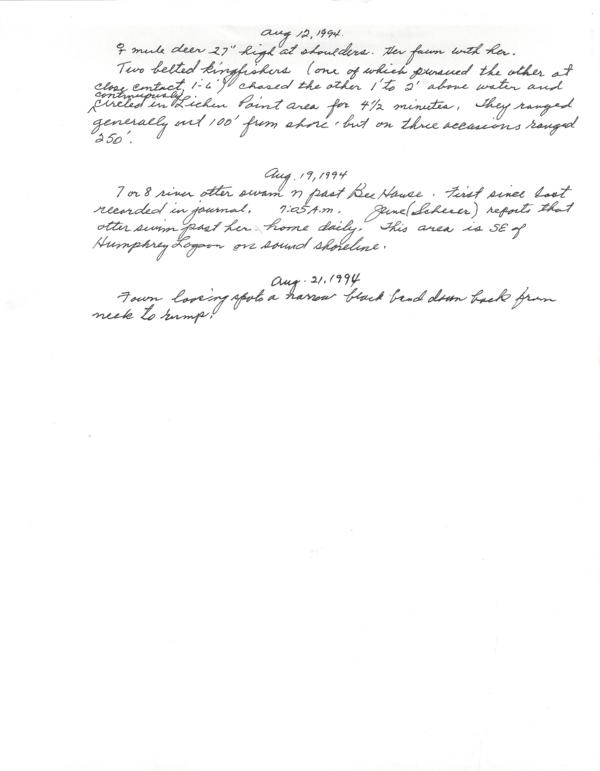 Aug 12, 1994.
♀ mule deer 27" high at shoulders. Her fawn with her.
Two belted kingfishers (one of which pursued the other at
close contact, 1-6') chased the other 1' to 2' above water and
continuously
circled in Lichen Point area for 4½ minutes. They ranged
generally out 100' from shore but on three occasions ranged
250'.
Aug. 19, 1994
7 or 8 river otter swam N past Bee House. First since last
recorded in journal. 7:05 A.M. June (Scherer) reports that
otter swim past her home daily. This area is SE of
Humphrey Lagoon on sound shoreline.
Aug. 21, 1994
Fawn loosing spots a narrow black band down back from
neck to rump.